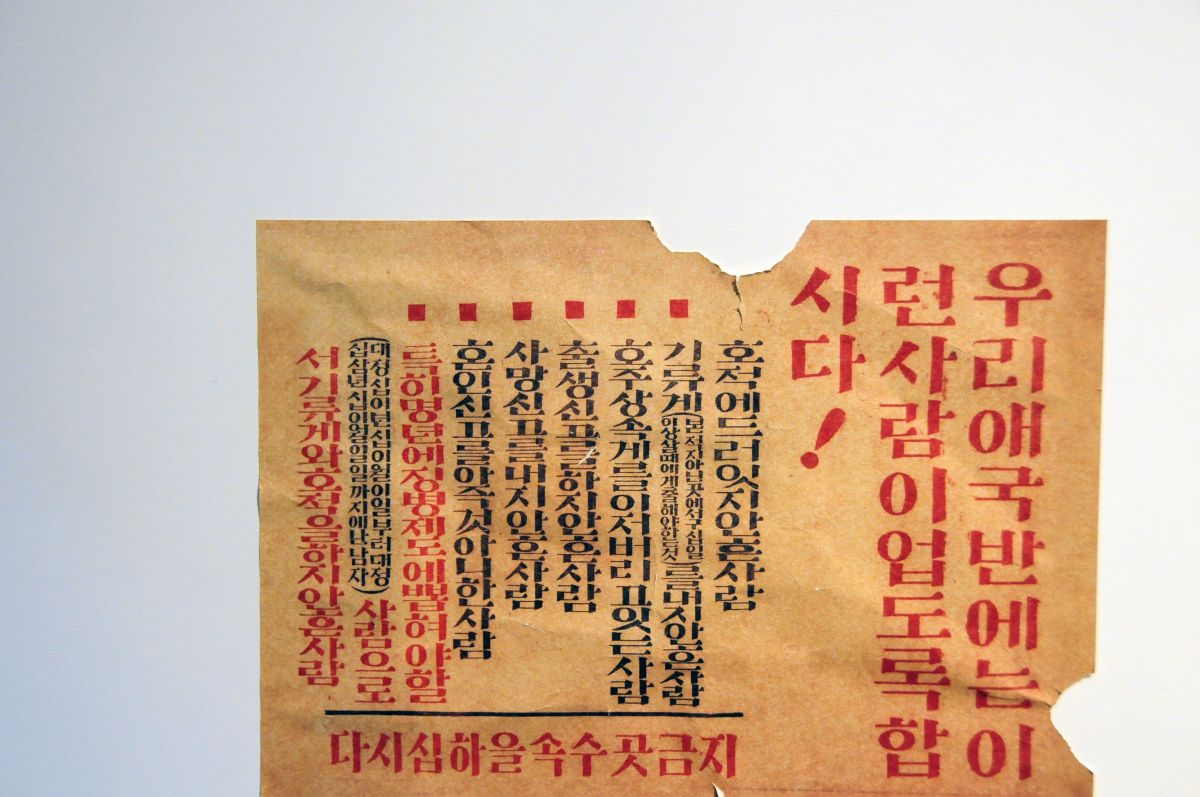 우리애국반에는이
련사람이업도록합
시다!
호적에드러잇지안흔사람
기류계(본적지아닌곳에서구십일
이상살때에게출해야만는것)를내지안흔사람
호주상속계를이저버리고잇는사람
출생신고를하지안흔사람
사망신고를내지안흔사람
혼인신고를아즉것아니한사람
특히명년에징병제도에뽑혀야할
(대정십이년십이월이일부터대정
십삼년십이월일일까지에난남자)사람으로
서기류계와호적을하지안흔사람
지금곳수속을하십시다